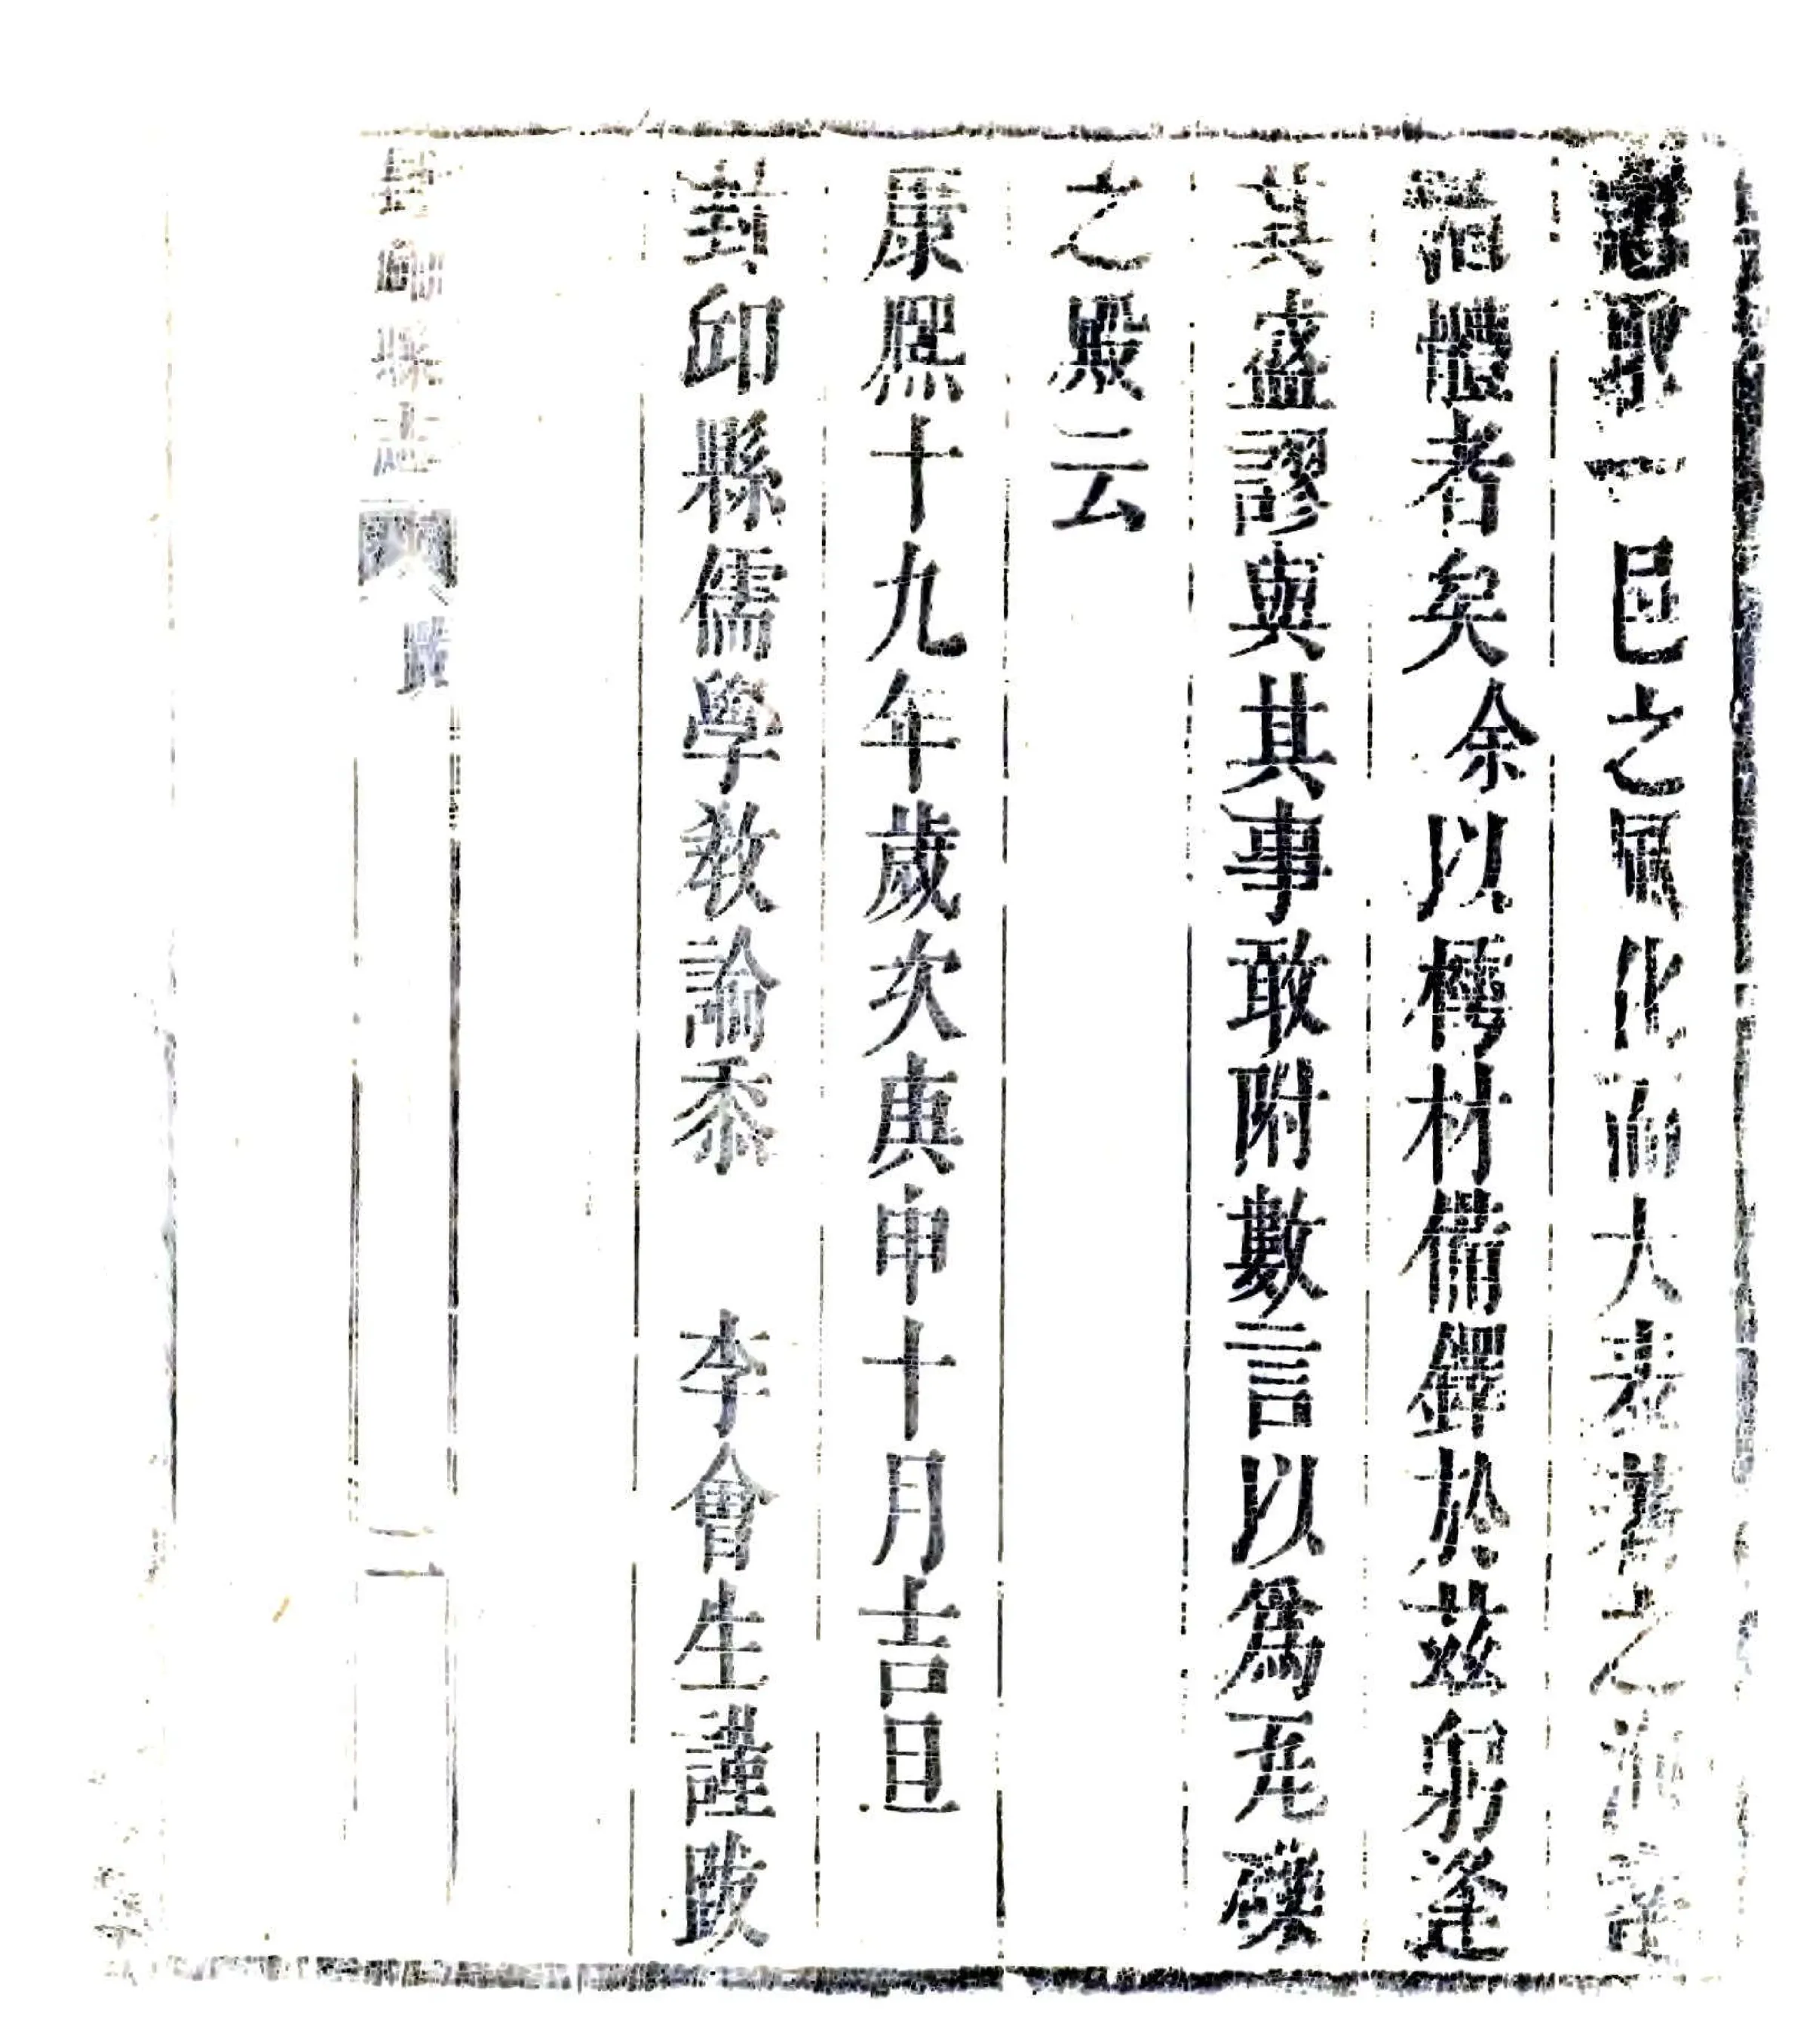 一邑之風化而大表著之洵達
治體者矣余以樗材備鐸於茲躬逢
其盛謬與其事敢附數言以爲瓦礫
之殿云
康熙十九年歲次庚申十月吉旦
封邱縣儒學教諭黍 李會生謹跋
封邱縣志 跋 二